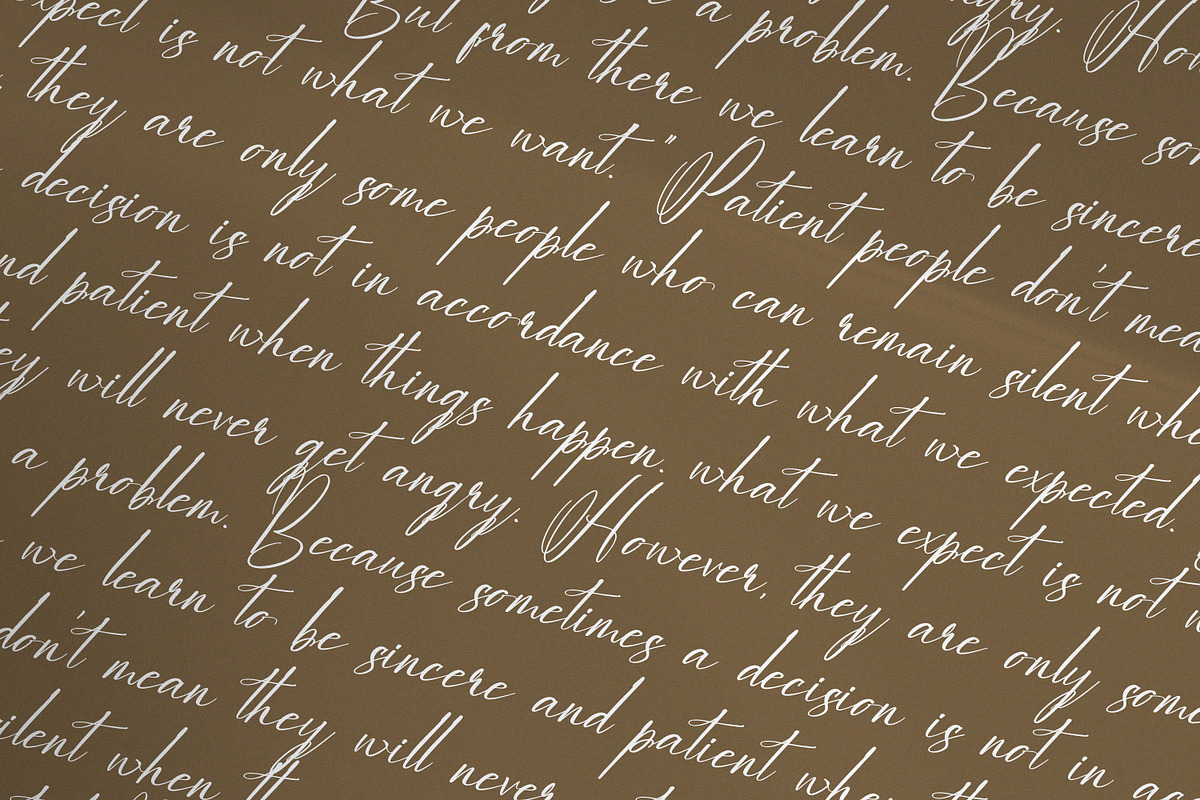 angry. How
a problem. Because so
But from there we learn to be sincere
expect is not what we want." Patient people don't mea
they are only some people who can remain silent whe
decision is not in accordance with what we expected.
nd patient when things happen. what we expect is not
ey will never get angry. However, they are only some
a problem. Because sometimes a decision is not in ac
we learn to be sincere and patient whe
don't mean they will never
silent when